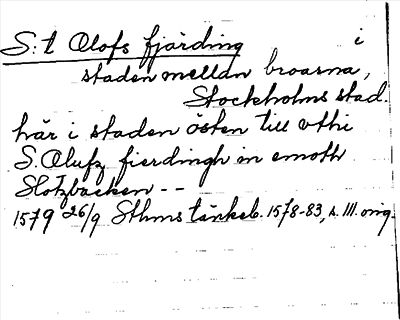 S:t Olofs fjärding i
staden mellan broarna,
Stockholms stad.
här i staden östen till vthi
S. Olufz fierdingh in emoth
Slotzbacken --
1579 26/9 Sthms tänkeb. 1578-83, s. 111. orig.